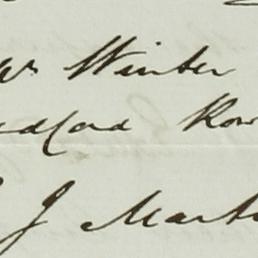 Mr Winter
edford Row
J Mart